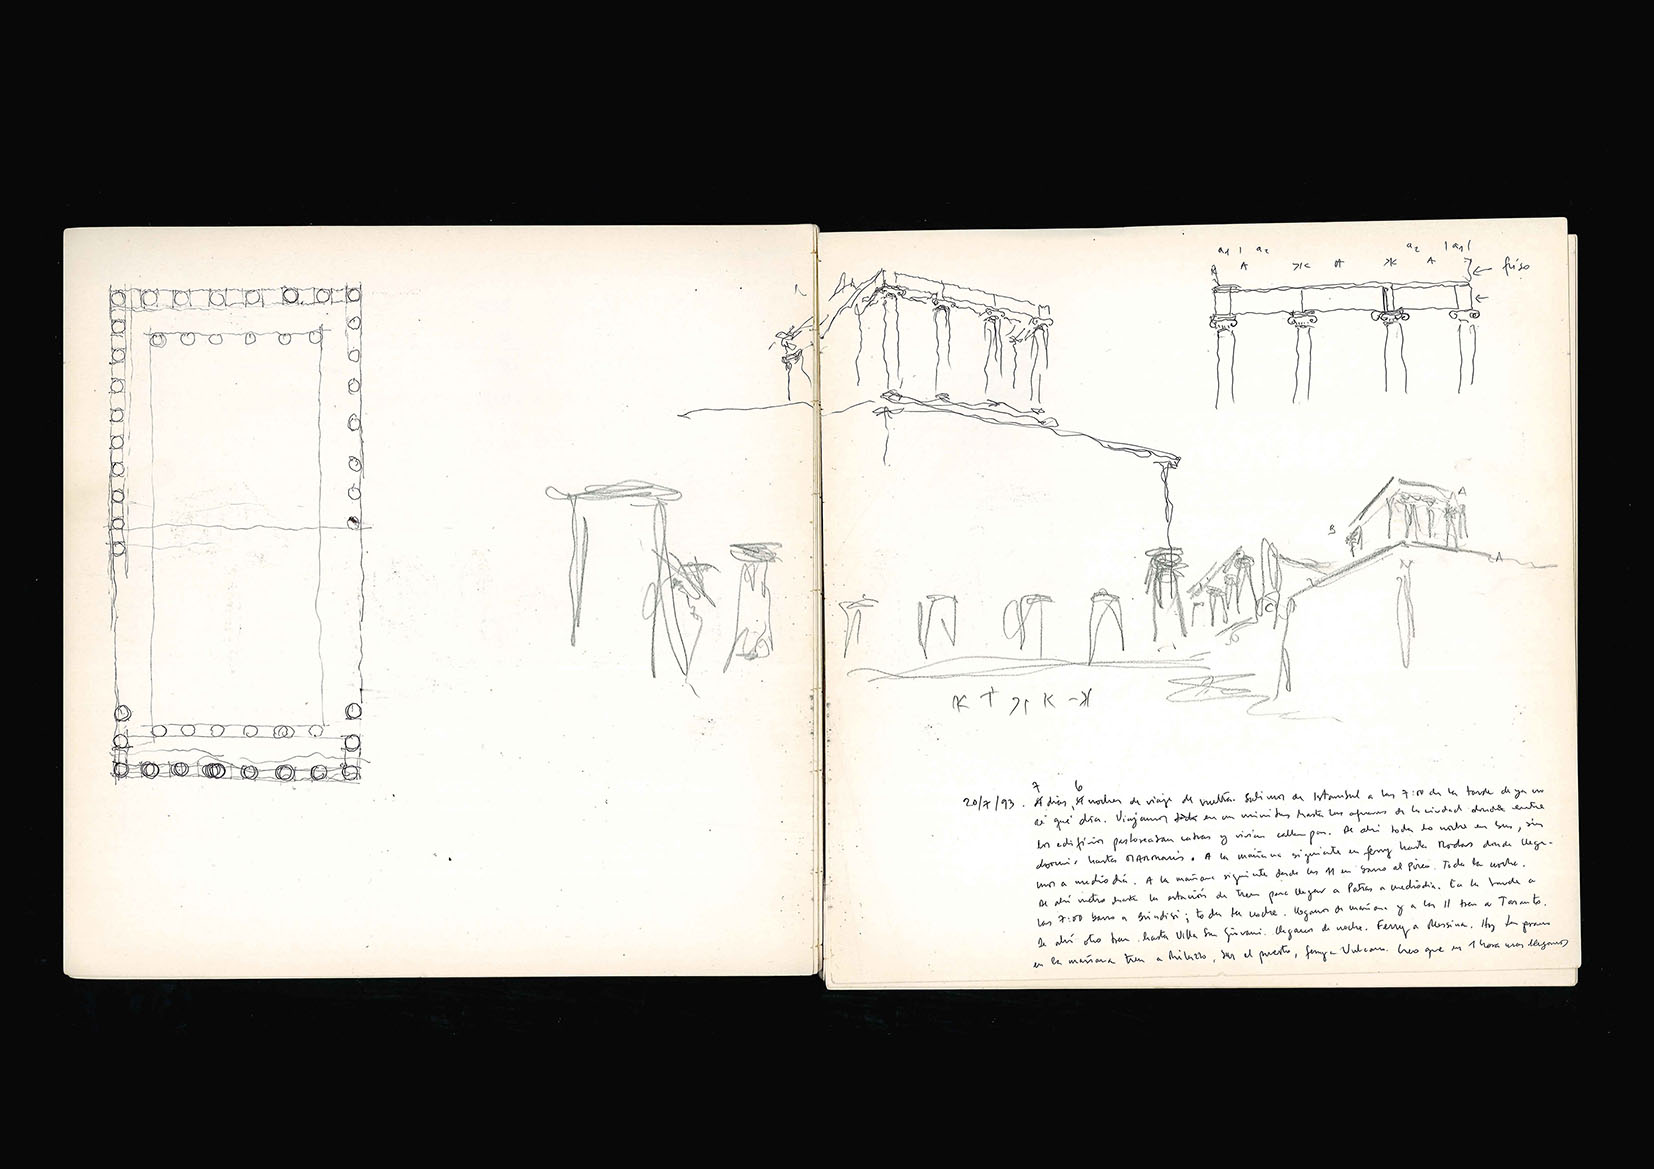 a1 | a2 a2 | a1 |
A A A
friso
A
B
A
C
7 6
20/7/93. días, noches de viaje de vuelta. Salimos de Istambul a las 7:00 de la tarde de ya no
sé qué día. Viajamos en un minibus hasta las afueras de la ciudad donde entre
los edificios pastoreaban cabras y vivían callampas. De ahí toda la noche en bus, sin
dormir hasta Marmaris. A la mañana siguiente en ferry hasta Rodas donde llega-
mos a mediodía. A la mañana siguiente desde las 11 en barco al Pireo. Toda la noche.
De ahí metro hasta la estación de tren para llegar a Patras a mediodía. En la tarde a
las 7:00 barco a Brindisi; toda la noche. Llegamos de mañana y a las 11 tren a Taranto.
De ahí otro tren hasta Villa San Giovanni. Llegamos de noche. Ferry a Messina. Hoy
en la mañana tren a Milazzo, bus al puerto, ferry a Vulcano. Creo que en 1 hora más llegamos